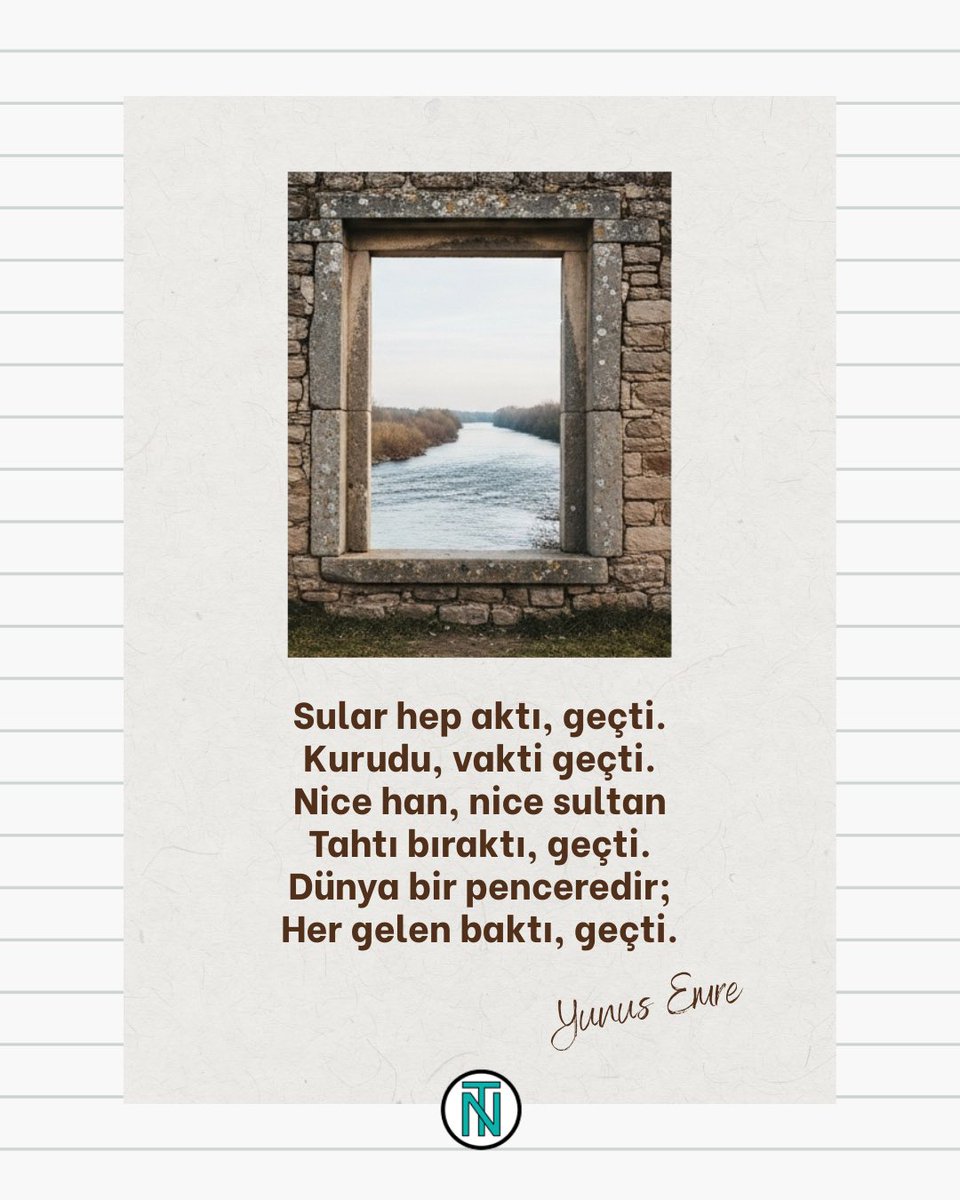 Sular hep aktı, geçti.
Kurudu, vakti geçti.
Nice han, nice sultan
Tahtı bıraktı, geçti.
Dünya bir penceredir;
Her gelen baktı, geçti.
Yunus Emre
TN